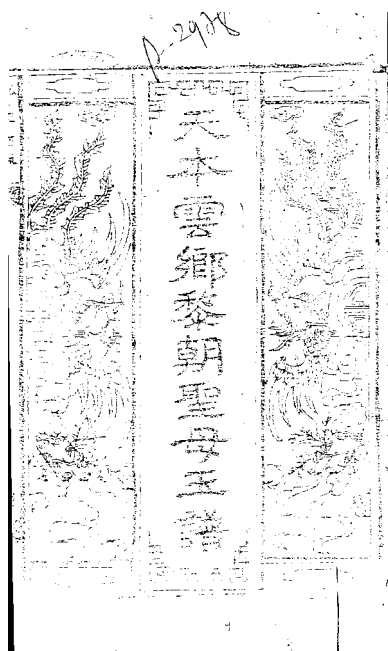 A-2978
天本雲鄉黎朝聖母玉譜